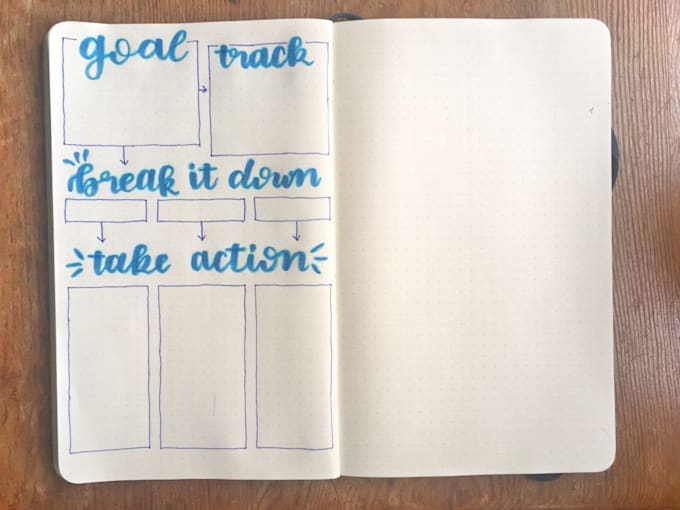 goal track
break it down
take action